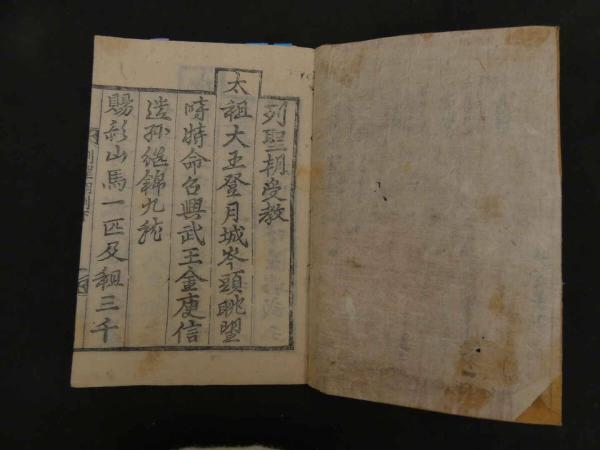 列聖朝受教
太祖大王登月城岑頭眺望
時特命召興武王金庾信
遺孫继錦九
賜彩山馬一匹及租三千